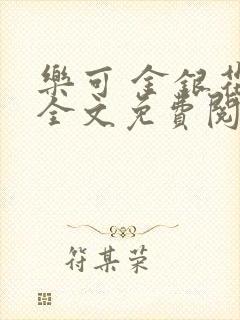 樂可 金銀花
全文免費閱
符某荣